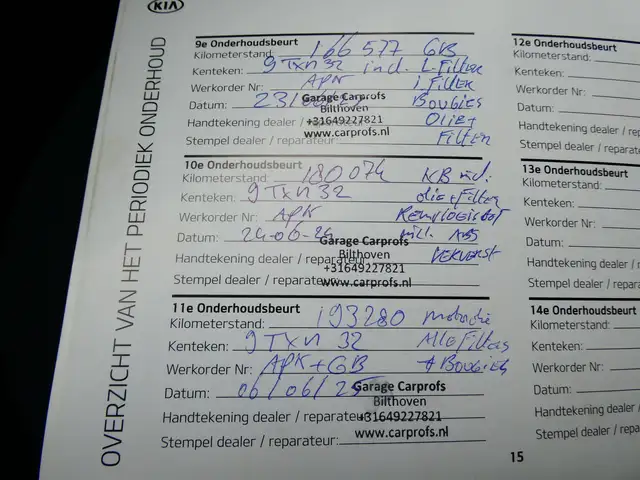 KIA
OVERZICHT VAN HET PERIODIEK ONDERHOUD
9e Onderhoudsbeurt
Kilometerstand: 166 577 GB
Kenteken: 9 TXN 32 incl. L-Filter
Werkorder Nr: APK i Filter
Datum: 23/ Bougies
Garage Carprofs
Bilthoven
Handtekening dealer / reparateur: Olie+
+31649227821
Stempel dealer / reparateur: Filter
www.carprofs.nl
10e Onderhoudsbeurt
Kilometerstand: 180 074 KB incl.
Kenteken: 9 TXN 32 olie+Filter
Werkorder Nr: APK Remvloeistof
Datum: 24-06-24 incl. ABS
Garage Carprofs
Bilthoven
Handtekening dealer / reparateur: ververst
+31649227821
Stempel dealer / reparateur:
www.carprofs.nl
11e Onderhoudsbeurt
Kilometerstand: 193280
Kenteken: 9 TXN 32 Alle Filters
Werkorder Nr: APK+GB + Bougies
Datum: 06/06/25
Garage Carprofs
Bilthoven
Handtekening dealer / reparateur:
+31649227821
Stempel dealer / reparateur:
www.carprofs.nl
12e Onderhoudsbeurt
Kilometerstand:
Kenteken:
Werkorder Nr:
Datum:
Handtekening dealer / rep
Stempel dealer / repara
13e Onderhoudsbeurt
Kilometerstand:
Kenteken:
Werkorder Nr:
Datum:
Handtekening dealer / r
Stempel dealer / repa
14e Onderhoudsbeurt
Kilometerstand:
Kenteken:
Werkorder Nr:
Datum:
Handtekening dealer /
Stempel dealer / rep
15